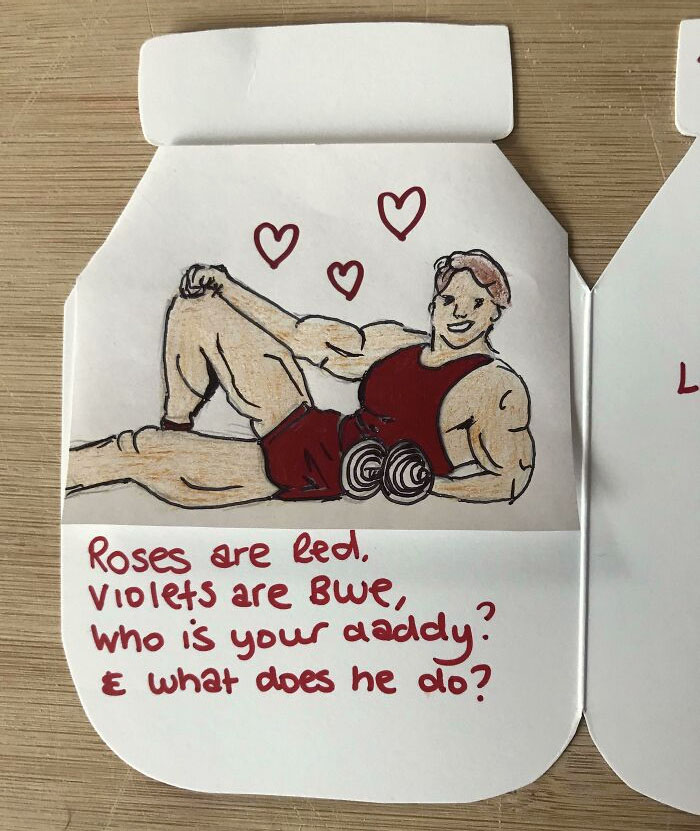 Roses are Red.
Violets are Blue,
Who is your daddy?
& what does he do?
L